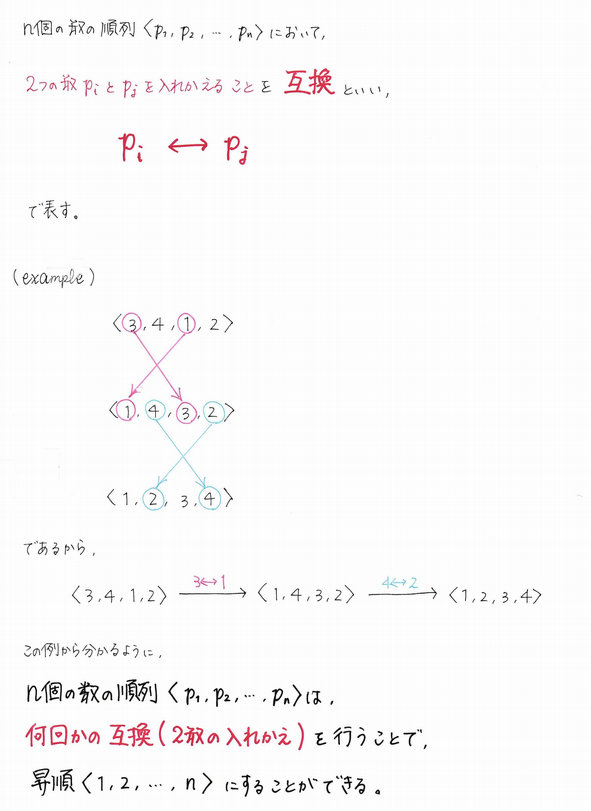 n個の数の順列〈p₁, p₂, …, pₙ〉において,
2つの数 pᵢ と pⱼ を入れかえることを 互換 といい,
pᵢ ↔ pⱼ
で表す。
(example)
〈3, 4, 1, 2〉
〈1, 4, 3, 2〉
〈1, 2, 3, 4〉
であるから,
3↔1 4↔2
〈3, 4, 1, 2〉 → 〈1, 4, 3, 2〉 → 〈1, 2, 3, 4〉
この例から分かるように,
n個の数の順列〈p₁, p₂, …, pₙ〉は,
何回かの互換(2数の入れかえ)を行うことで,
昇順〈1, 2, …, n〉にすることができる。